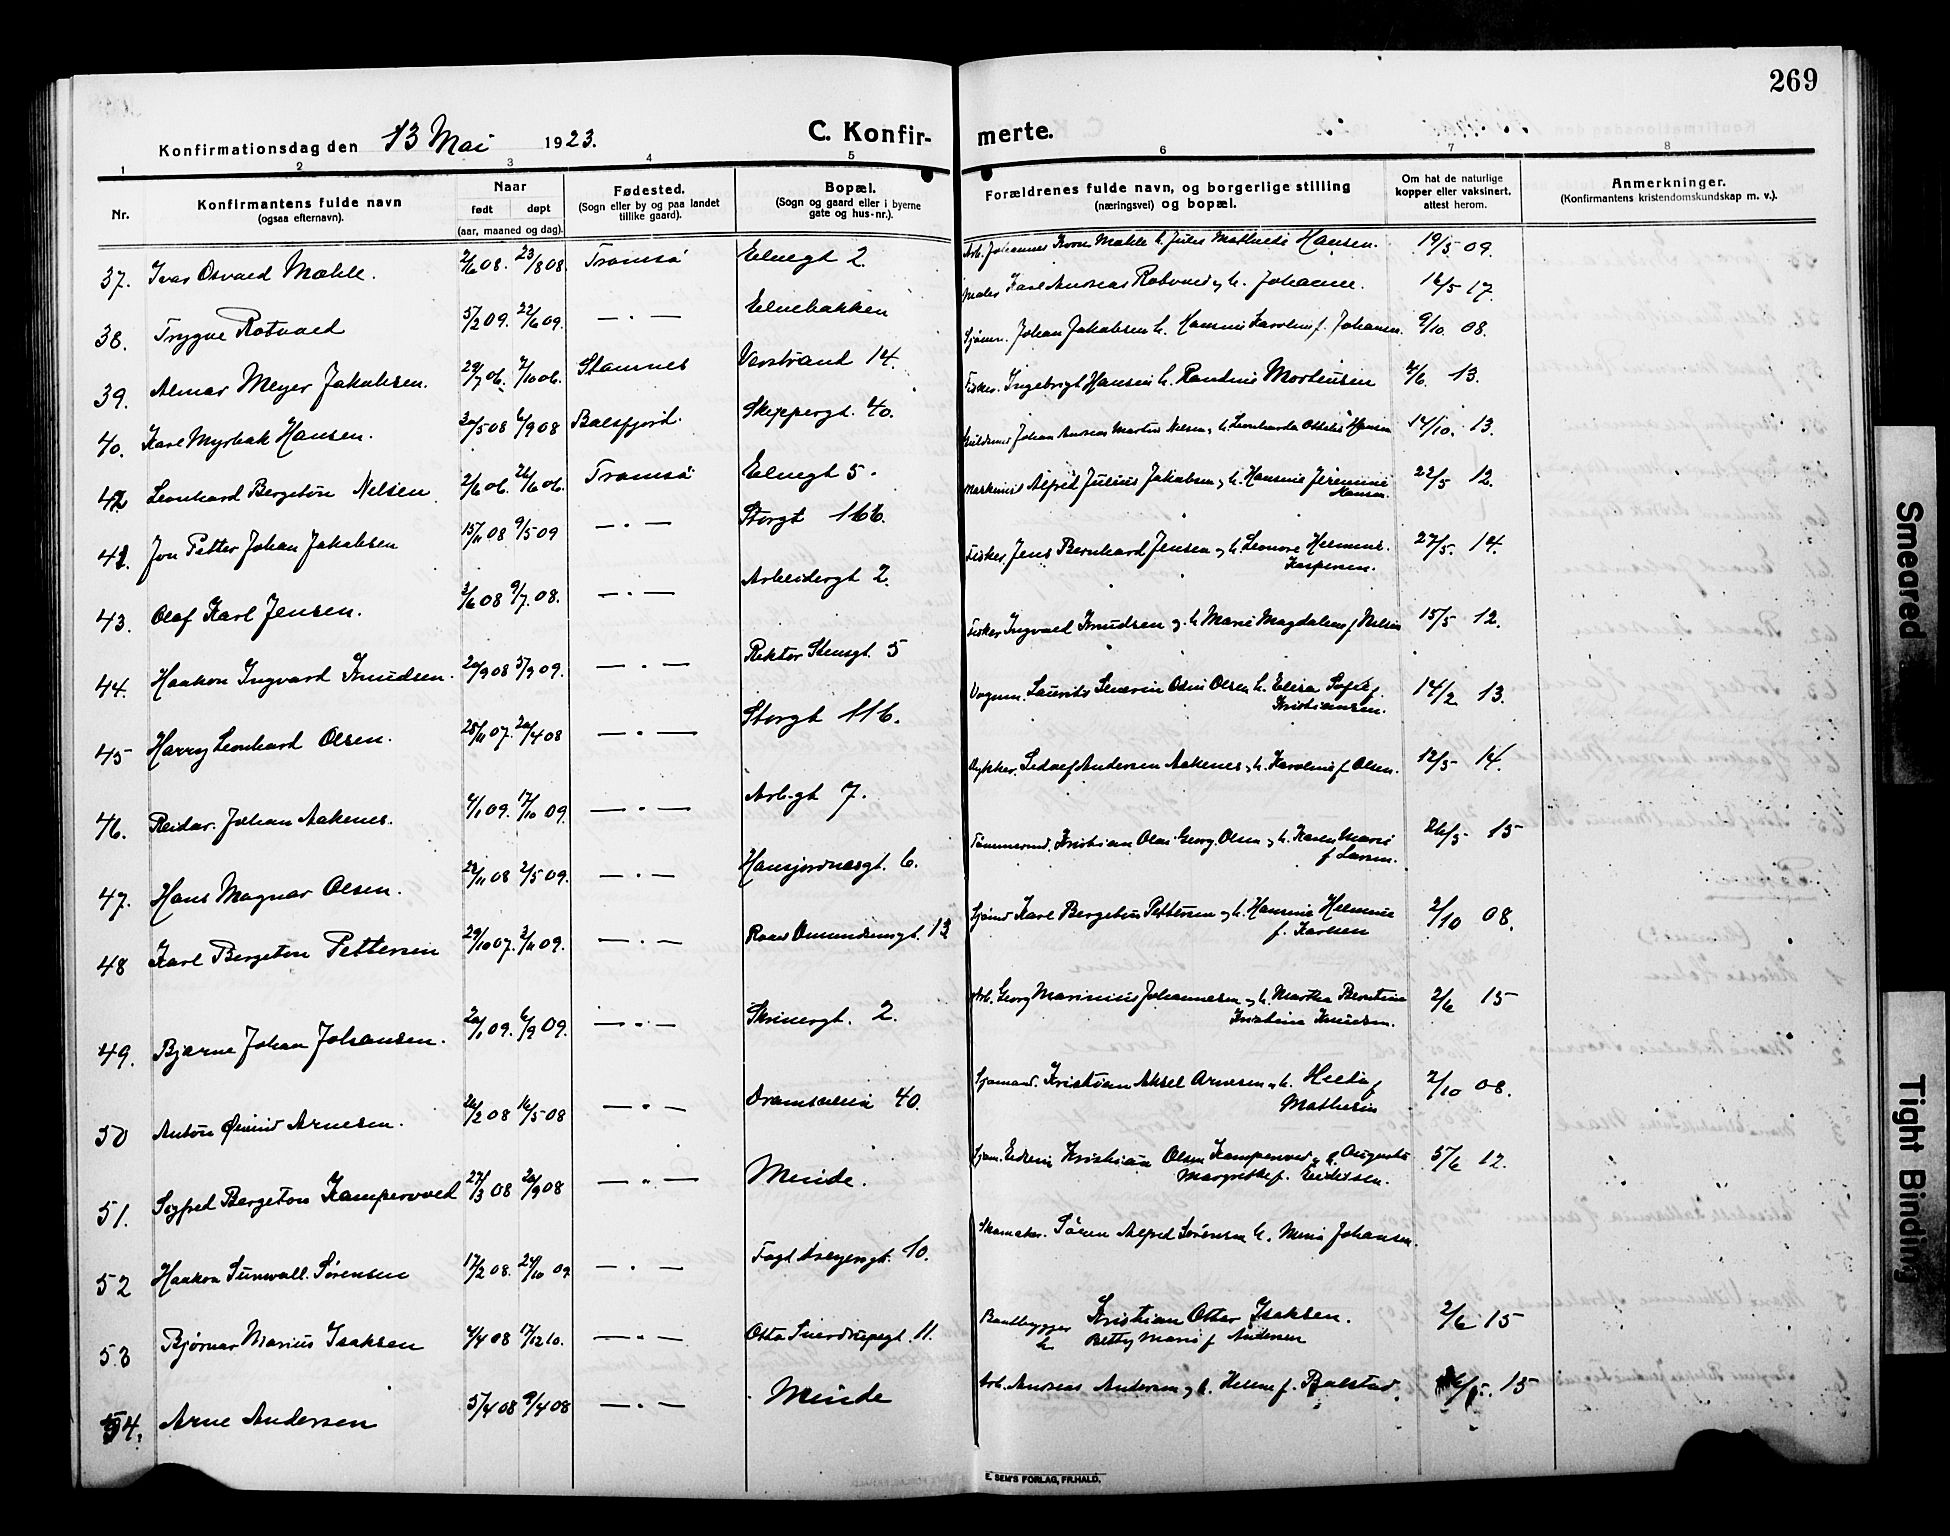 269
Konfirmationsdag den 13 Mai 1923. C. Konfirmerte.
1 2 3 4 5 6 7 8
Nr. Konfirmantens fulde navn (ogsaa efternavn). Naar født døpt (aar, maaned og dag). Fødested. (Sogn eller by og paa landet tillike gaard). Bopæl. (Sogn og gaard eller i byerne gate og hus-nr.). Forældrenes fulde navn, og borgerlige stilling (næringsvei) og bopæl. Om hat de naturlige kopper eller vaksinert, attest herom. Anmerkninger. (Konfirmantens kristendomskundskap m. v.).
37. Ivar Osvald Mæhle. 2/6 08. 23/8 08. Tromsø Elvegt 2. Arb. Johannes Mæhle h. Hansen. 19/5 09.
38. Trygve Rotvold 5/2 09. 22/6 09. — . — Elvebakken Maler Karl Andreas Rotvold og h. Johanne. 16/5 17.
39. Almar Meyer Jakobsen. 29/7 06. 7/10 06. Stamnes Vestrand 14. Sjøm. Johan Jakobsen h. Hansine Karoline f. Johansen. 9/10 08.
40. Karl Myrbak Hansen. 20/5 08 6/9 08 Balsfjord. Skippergt. 40. Fisker. Ingebrigt Hansen h. Randine Mortensen 2/6. 13.
42 Leonhard Bergeton Nelsen 2/6 06. 26/6 06. Tromsø Elvegt 5. Johan Andreas Martin Nelsen og h. Leonharda Hansen 14/10. 13.
41. Jon Petter Johan Jakobsen 15/11 08 9/5 09 — . — Storgt 166. Maskinist Alfred Julius Jakobsen og h. Hansine Jeremine Hansen. 22/5 12.
43. Olaf Karl Jensen. 3/6 08 9/7. 08. — . — Arbeidergt 2. Fisker Jens Bernhard Jensen og h. Leonore Hermine. Kaspersen. 27/5. 14.
44. Haakon Ingvard Knudsen. 20/9 08 5/9 09. — . — Rektor Steensgt. 5 Fisker Ingvald Knudsen og h. Marie Magdalene f. Nelsen 15/5 12.
45 Harry Leonhard Olsen. 25/11 07. 20/4 08 — . — Storgt 116. Vognm. Laurits Severin Odin Olsen h. Elisa Sofie f. Kristiansen. 14/2 13.
46. Reidar Johan Aakenes. 4/1 09. 17/10 09. — . — Arb.gt 7. Dykker. Andersen Aakenes og h. Karoline f. Olsen. 12/5 14.
47. Hans Magnar Olsen. 22/11 08 2/5 09. — . — Hansjordnesgt. 6. Tømmermd. Kristian Olai Georg Olsen og h. Karen Marie f. Larsen. 26/5 15
48 Karl Bergeton Pettersen 29/10 07. 3/11 09. — . — Roald Amundsensgt. 13 Sjømd Karl Bergeton Pettersen og h. Hansine Helmine f. Karlsen 2/10 08.
49. Bjarne Johan Johansen. 20/1 09. 6/9 09. — . — Skrivergt. 2. Arb. Georg Marinius Johannesen og h. Martha Berntine Kristine Knutsen. 2/6 15
50 Anton Øivind Arnesen. 26/2 08 16/5 08 — . — Dramsveien 40. Sjømand. Kristian Aksel Arnesen og h. Hilda f. Mathisen 2/10 08.
51. Sigfred Bergeton Kampevold 27/3 08 20/9 08 — " — Minde. Sjøm. Kristian Olsen Kampevold og h. Augusta Margrethe f. Eidissen. 5/6 12.
52 Haakon Sunwall. Sørensen 17/2 08. 24/10 09. — . — Fogt Dreyersgt. 10. Skomaker. Søren Alfred Sørensen h. Johansen.
53 Bjørnar Marius Isaksen 4/4 08 17/12 10. — . — Otto Sverdrupsgt. 11. Baatbygger Kristian Otter Isaksen. h. Betty Marie f. Andersen 2/6 15
54. Arne Andersen 5/4 08 9/4 08 — . — Minde Arb. Andreas Andersen og h. Helene f. Balstad. /5. 15
E. SEM'S FORLAG, FR.HALD.
Smeared
Tight Binding